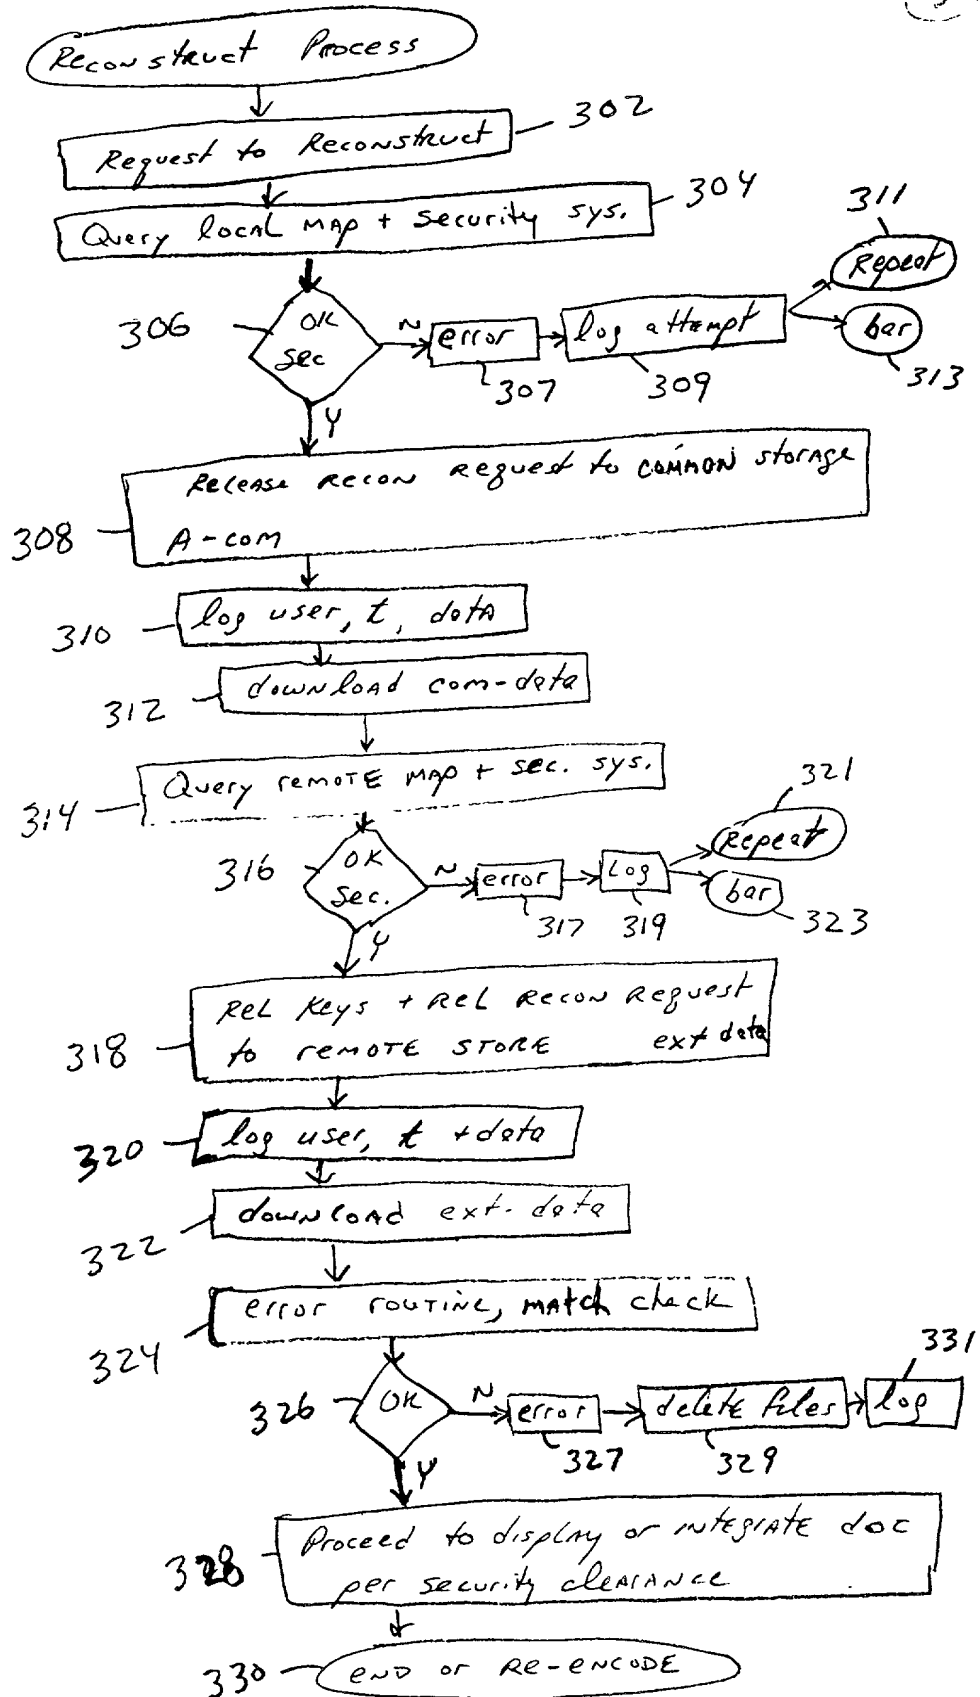 Reconstruct Process
302
Request to Reconstruct
304
Query local map + security sys.
311
Repeat
306
OK
sec
N
error
log attempt
bar
307
309
313
Y
Release recon request to common storage
308
A-com
310
log user, t, data
312
download com-data
314
Query remote map + sec. sys.
321
Repeat
316
OK
sec.
N
error
Log
bar
317
319
323
Y
Rel Keys + Rel Recon Request
318
to remote store ext data
320
log user, t + data
322
download ext-data
324
error routine, match check
331
326
OK
N
error
delete files
log
327
329
Y
Proceed to display or integrate doc
328
per security clearance
330
end or re-encode